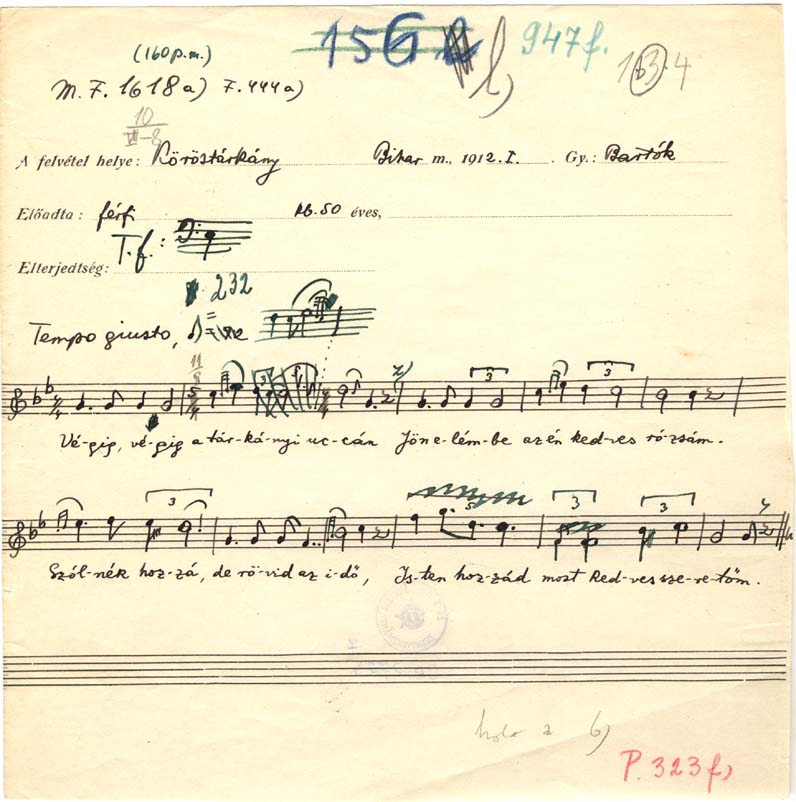 156 b) 947f. 1634
(160 p.m.)
M. F. 1618a) F. 444a)
10
VII-8
A felvétel helye: Köröstárkány Bihar m., 1912. I. Gy.: Bartók
Előadta: férfi kb. 50 éves,
T. f.:
Elterjedtség:
232
Tempo giusto, ♪=
11
8
3 3 3
Vé-gig, vé-gig a tár-ká-nyi uc-cán Jön e-lém-be az én ked-ves ró-zsám.
3 3 3
Szól-nék hoz-zá, de rö-vid az i-dő, Is-ten hoz-zád most ked-ves sze-re-tőm.
b)
P. 323 f)